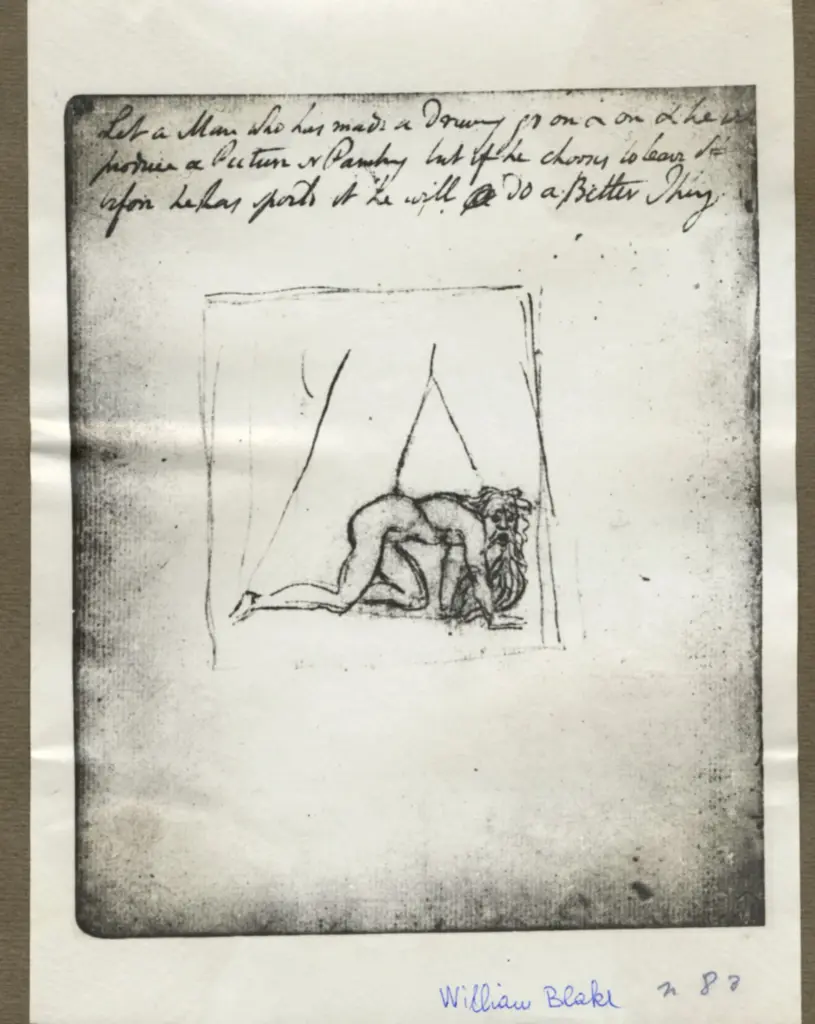 Let a Man who has made a Drawing go on & on & he
produce a Picture or Painting but if he chooses to leave it
before he has spoild it he will do a Better Thing
William Blake n 8